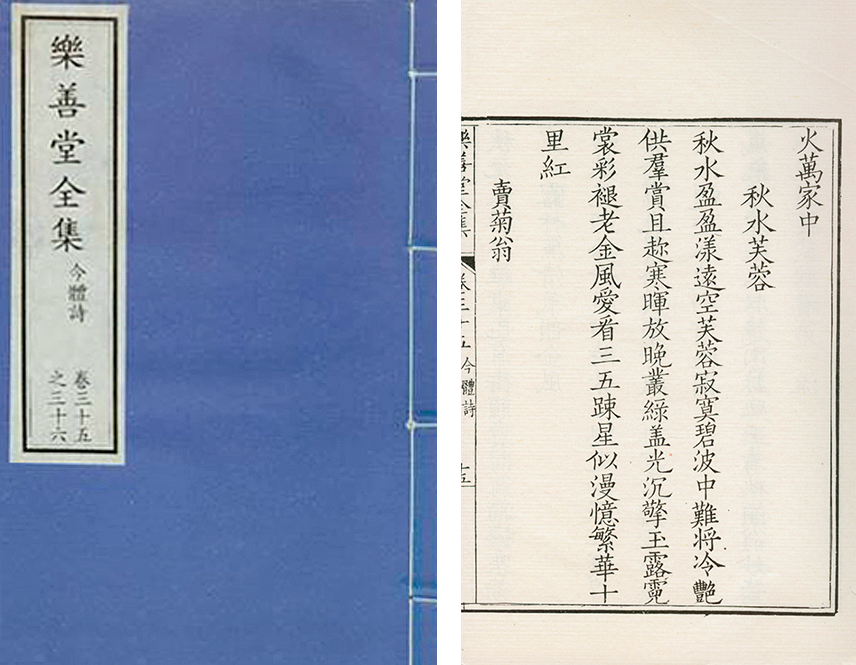 樂善堂全集
今體詩
卷三十五
之三十六
火萬家中
秋水芙蓉
秋水盈盈漾遠空芙蓉寂寞碧波中難將冷艷
供羣賞且趂寒暉放晚叢綠盖光沉擎玉露霓
裳彩褪老金風愛看三五踈星似漫憶繁華十
里紅
賣菊翁
樂善堂全集
卷三十五
今體詩
十五